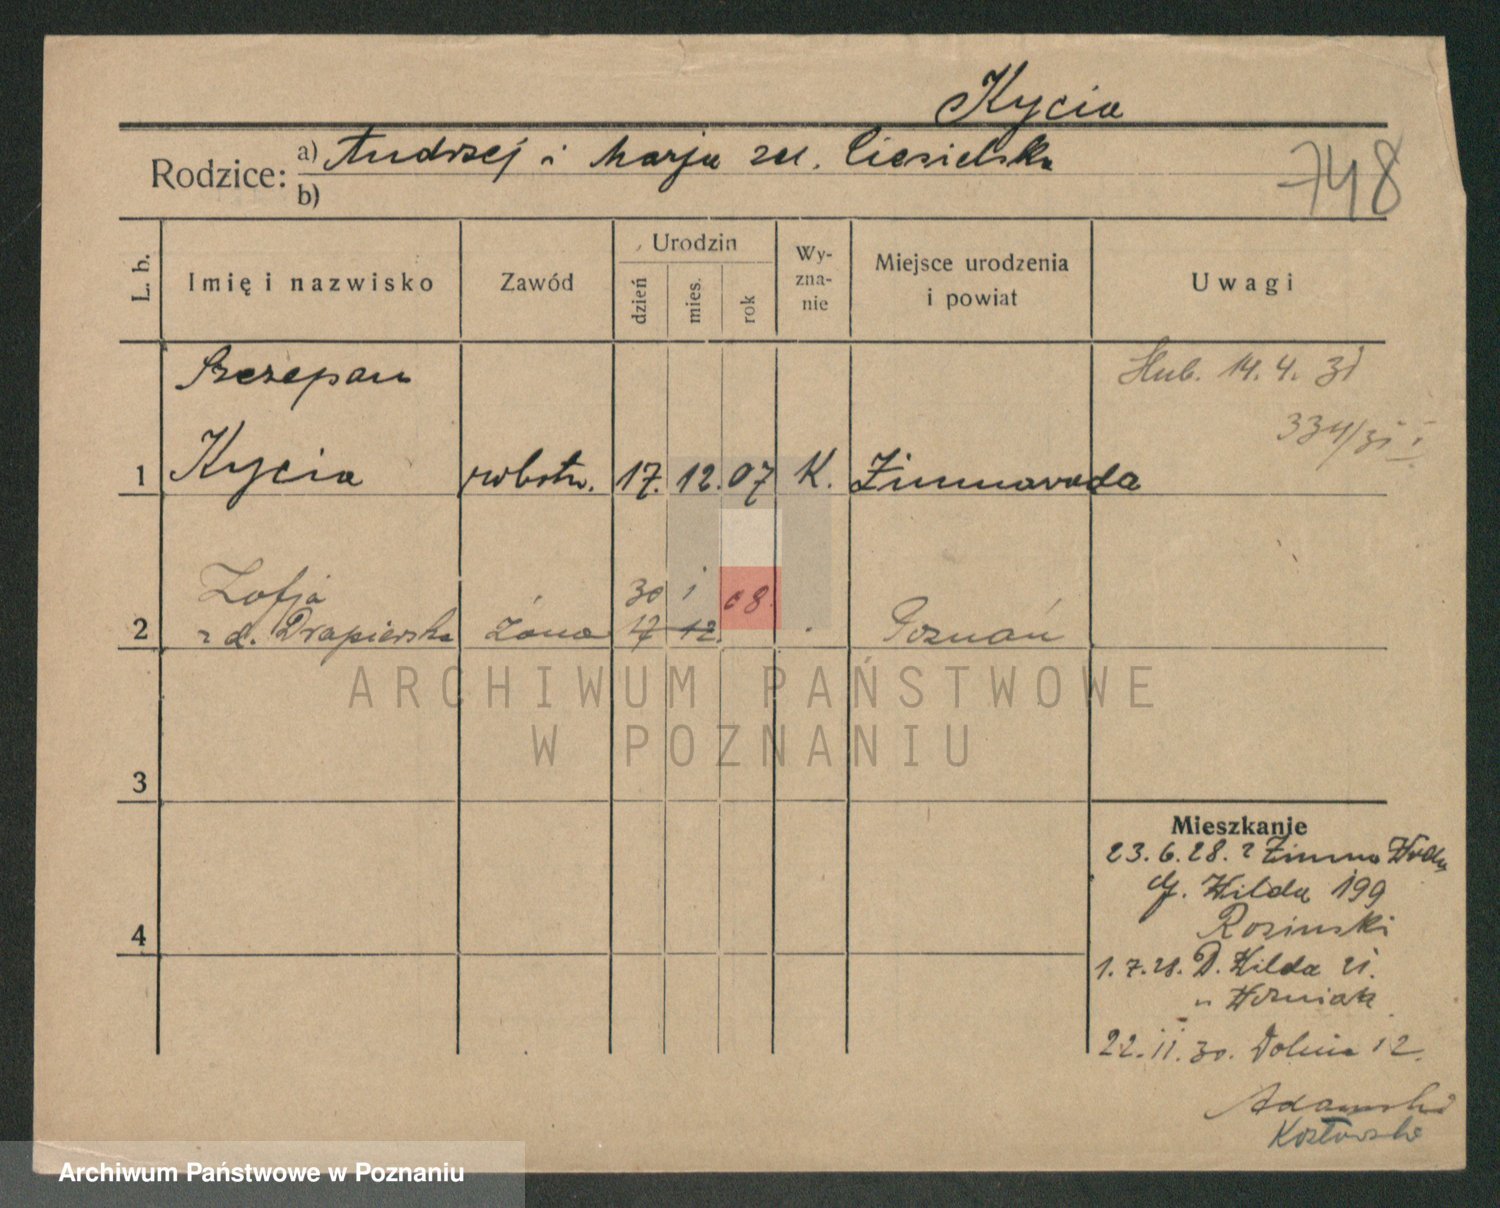 Kycia
Rodzice: a) Andrzej i Marja zd. Ciesielska
b)
748
L. b.
Imię i nazwisko
Zawód
Urodzin
dzień
mies.
rok
Wy-
zna-
nie
Miejsce urodzenia
i powiat
Uwagi
Szczepan
Ślub. 14. 4. 31
334/31 I
1 Kycia robotn. 17. 12. 07 K. Zimnawoda
Zofja 30 i 08.
2 z d. Drapierska żona 17 12. Poznań
ARCHIWUM PAŃSTWOWE
W POZNANIU
3
Mieszkanie
23. 6. 28. z Zimna Woda
G. Wilda 199
Rosinski
4
1. 7. 28. D. Wilda 21.
u Woźniak
22. II. 30. Dolina 12.
Adamski
Kozłowski
Archiwum Państwowe w Poznaniu